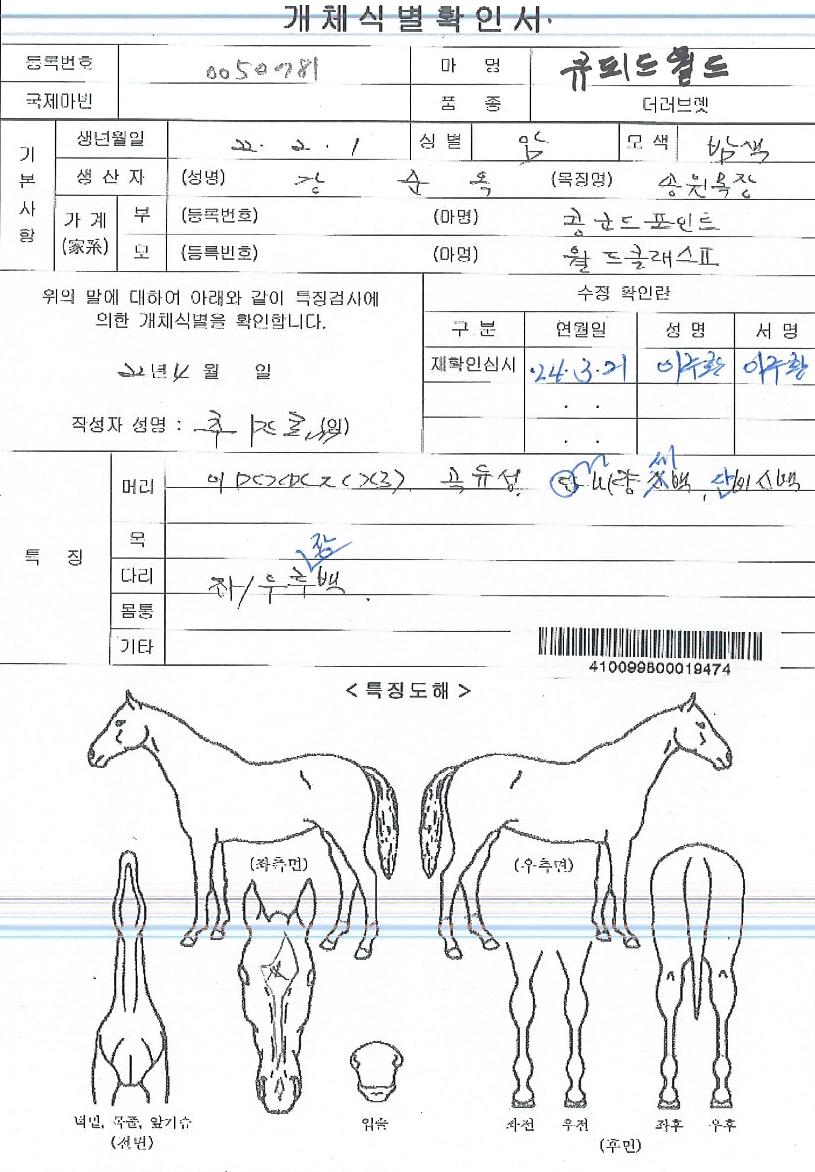 개체식별확인서
등록번호 0050781 마 명 큐피드월드
국제마번 품 종 더러브렛
기본사항 생년월일 22. 2. 1 성 별 암 모 색 밤색
생 산 자 (성명) 강 순 옥 (목장명) 송원목장
가 계 (家系) 부 (등록번호) (마명) 콩코드포인트
모 (등록번호) (마명) 월드클래스II
위의 말에 대하여 아래와 같이 특징검사에
의한 개체식별을 확인합니다.
22년 4 월 일
작성자 성명 : (인)
수정 확인란
구 분 연월일 성 명 서 명
재확인심사 '24. 3. 21
. .
. .
특 징
머리 곡유성
목
다리 좌/우후장백
몸통
기타
410099800019474
< 특징도해 >
(좌측면) (우측면)
턱밑, 목줄, 앞가슴 입술 좌전 우전 좌후 우후
(전면) (후면)